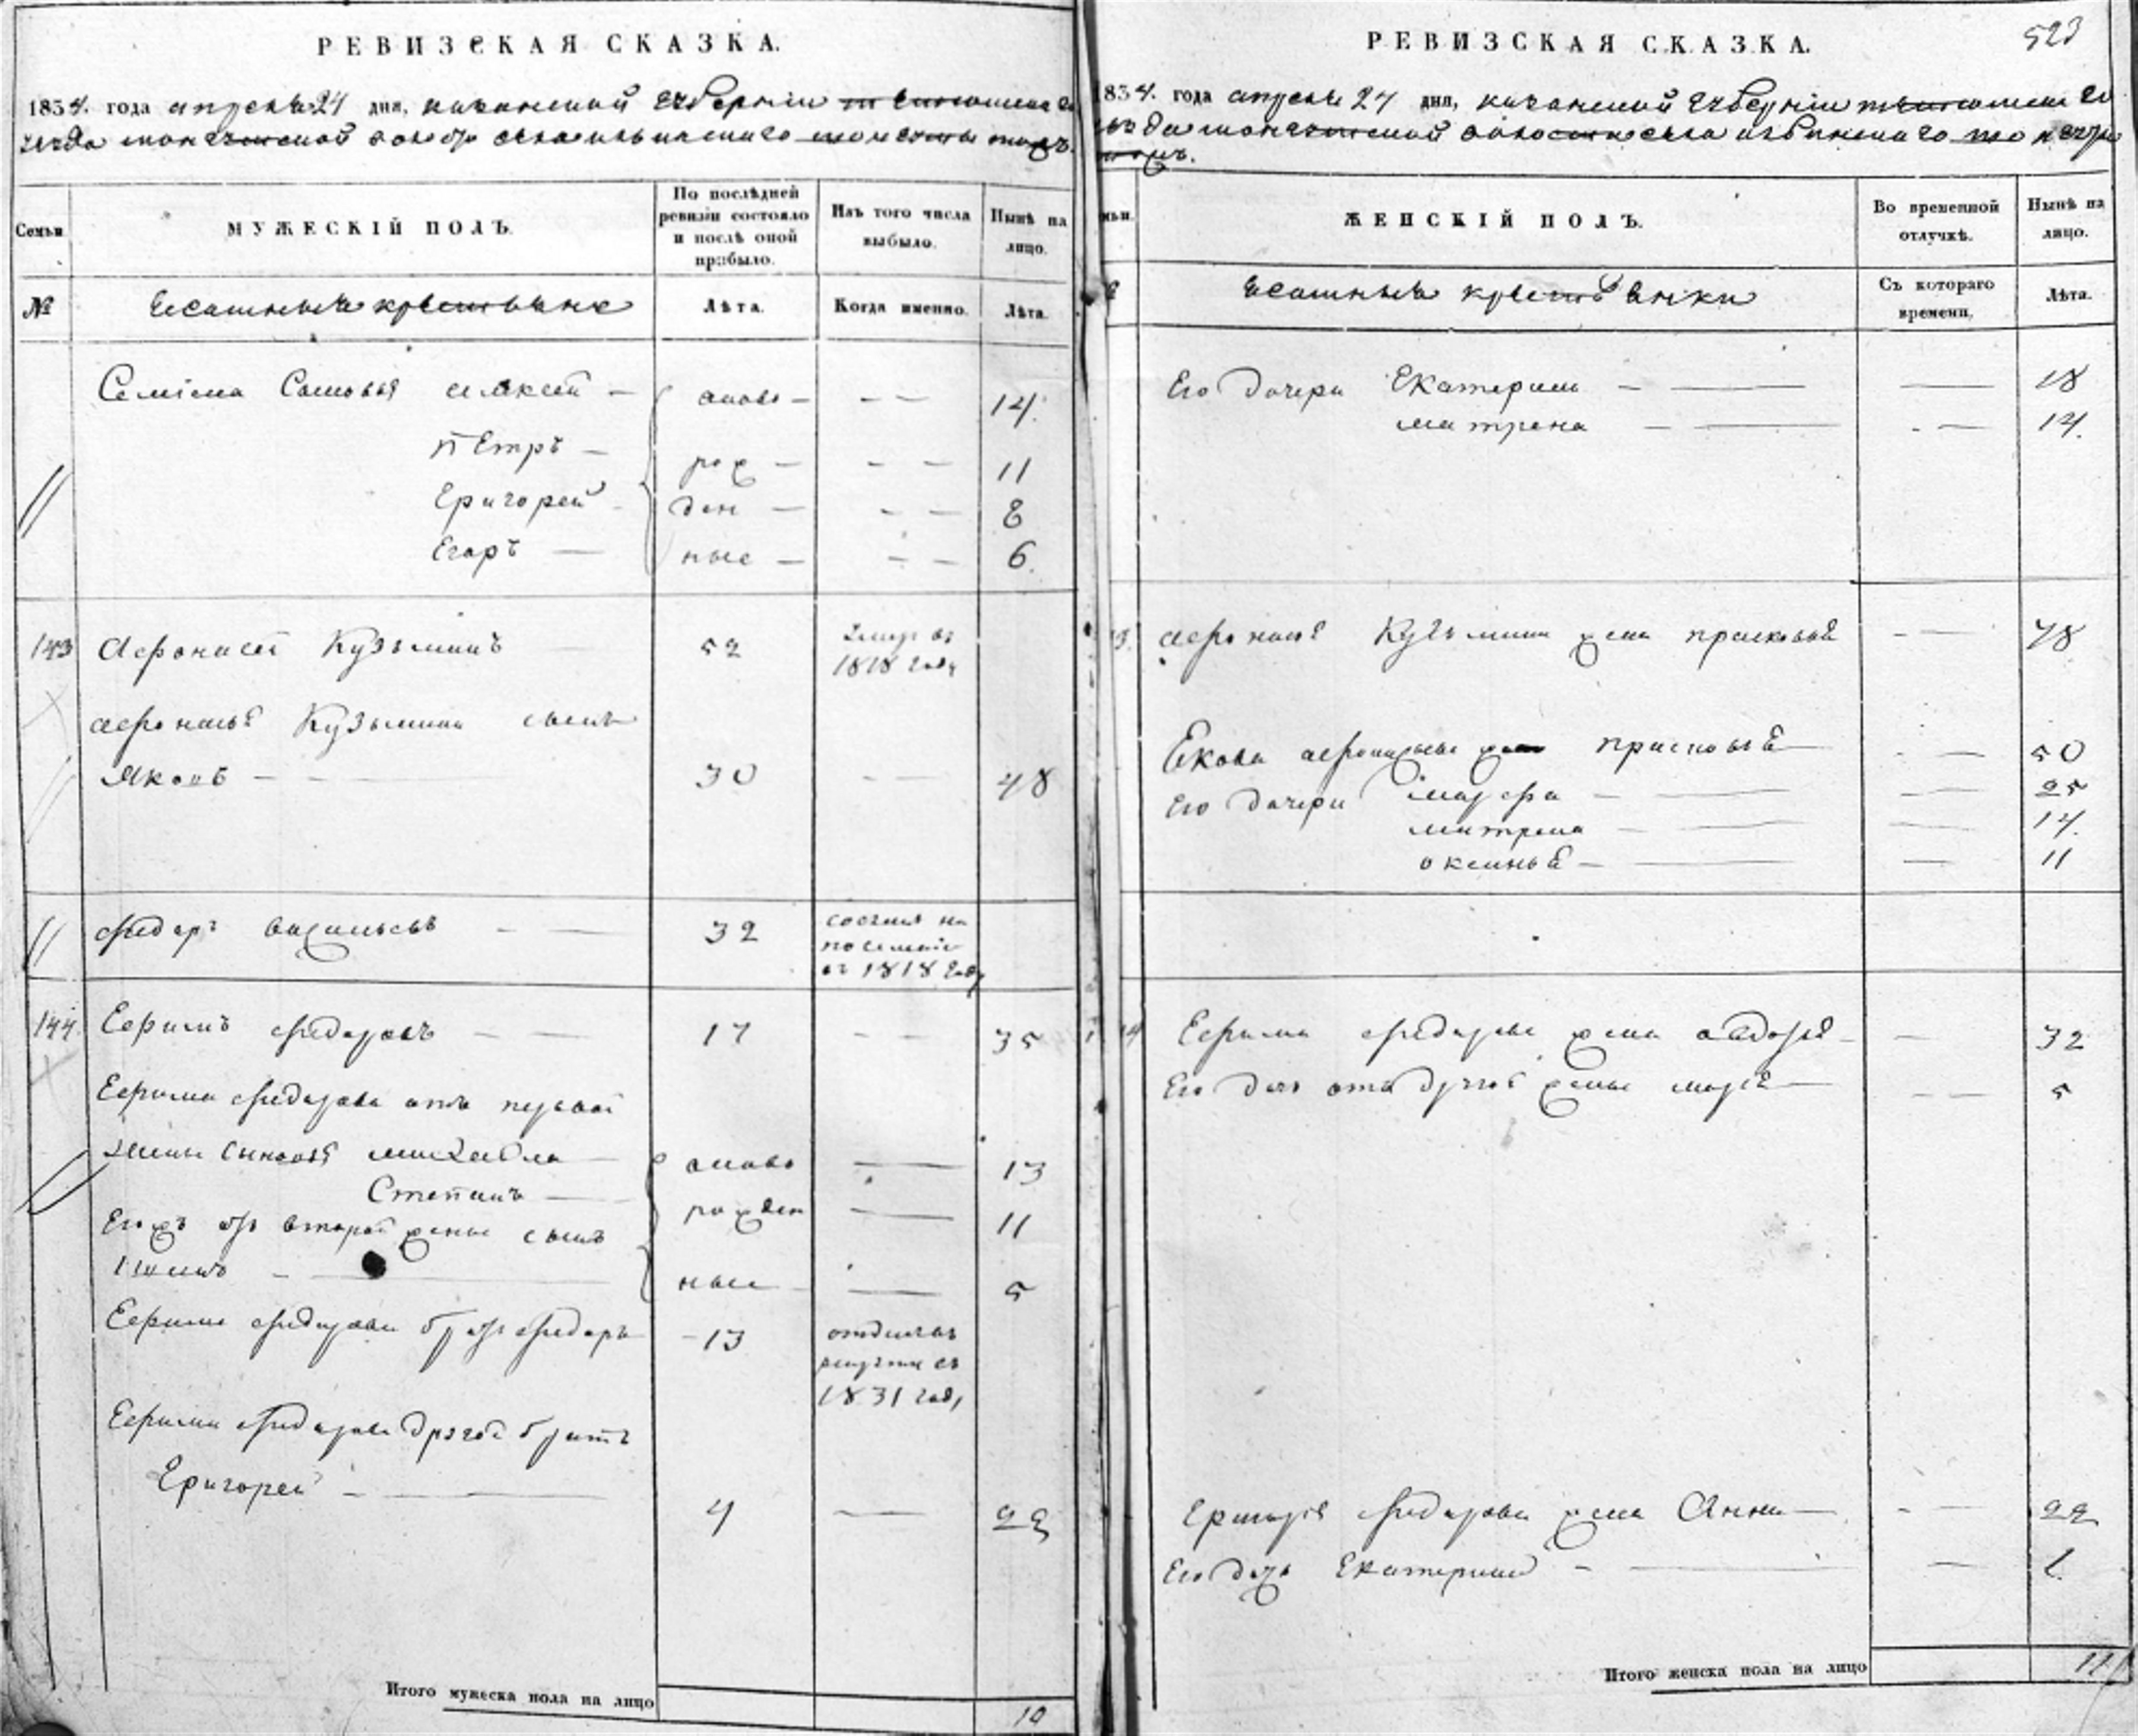 РЕВИЗСКАЯ СКАЗКА.
1834. года апреля 24 дня, казанской губернии
уезда волости села
Семьи
МУЖЕСКІЙ ПОЛЪ.
По послѣдней ревизіи состояло и послѣ оной прибыло.
Изъ того числа выбыло.
Нынѣ на лицо.
№
Ясашныя крестьяне
Лѣта.
Когда именно.
Лѣта.
Семіона сыновья алексей — снова — — — 14.
пЕтръ — рож — — — 11
Григорей — ден — — — 8
Егоръ — ные — — — 6.
143 Афонасей Кузьминъ 52 умер въ 1818 году
афонасья Кузьмина сынъ
Яковъ — — 30 — 48
федаръ васильевъ — — 32 сосланъ на поселение въ 1818 году
144. Ефимъ федаровъ — — 17 — — 35
Ефима федарова отъ первой
жены сыновья михайла — снова — 13
Степанъ — рожден — 11
Егожъ отъ второй жены сынъ
ные — 5
Ефима федарова братъ федаръ — 13 отданъ въ рекруты въ 1831 году
Ефима федарова другой братъ
Григорей — 4 — 22
Итого мужеска пола на лицо 10
523
РЕВИЗСКАЯ СКАЗКА.
1834. года апреля 24 дня, казанской губерніи
волости села
ЖЕНСКІЙ ПОЛЪ.
Во временной отлучкѣ.
Нынѣ на лицо.
Ясашныя крестьянки
Съ котораго времени.
Лѣта.
Его дочери Екатерина — — — 18
матрена — — — 14.
афонасья Кузьмина жена прасковья — — 48
Якова афонасьева жена прасковья — — 50
Его дочери марфа — — — 25
матрена — — — 14.
оксинья — — — 11
Ефима федарова жена авдотья — — 32
Его дочь отъ другой жены марья — — — 5
Григорья федарова жена Анна — — 22
Его дочь Екатерина — — — 1.
Итого женска пола на лицо 11